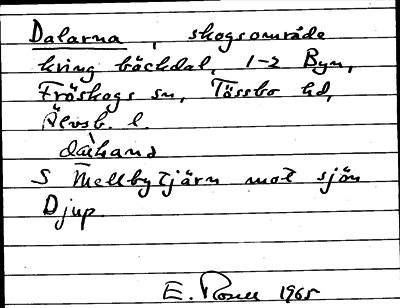 Dalarna, skogsområde
kring bäckdal, 1-2 Byn,
Fröskogs sn, Tössbo hd,
Älvsb. l.
S Mellbytjärn mot sjön
Djup.
E. Rosell 1965